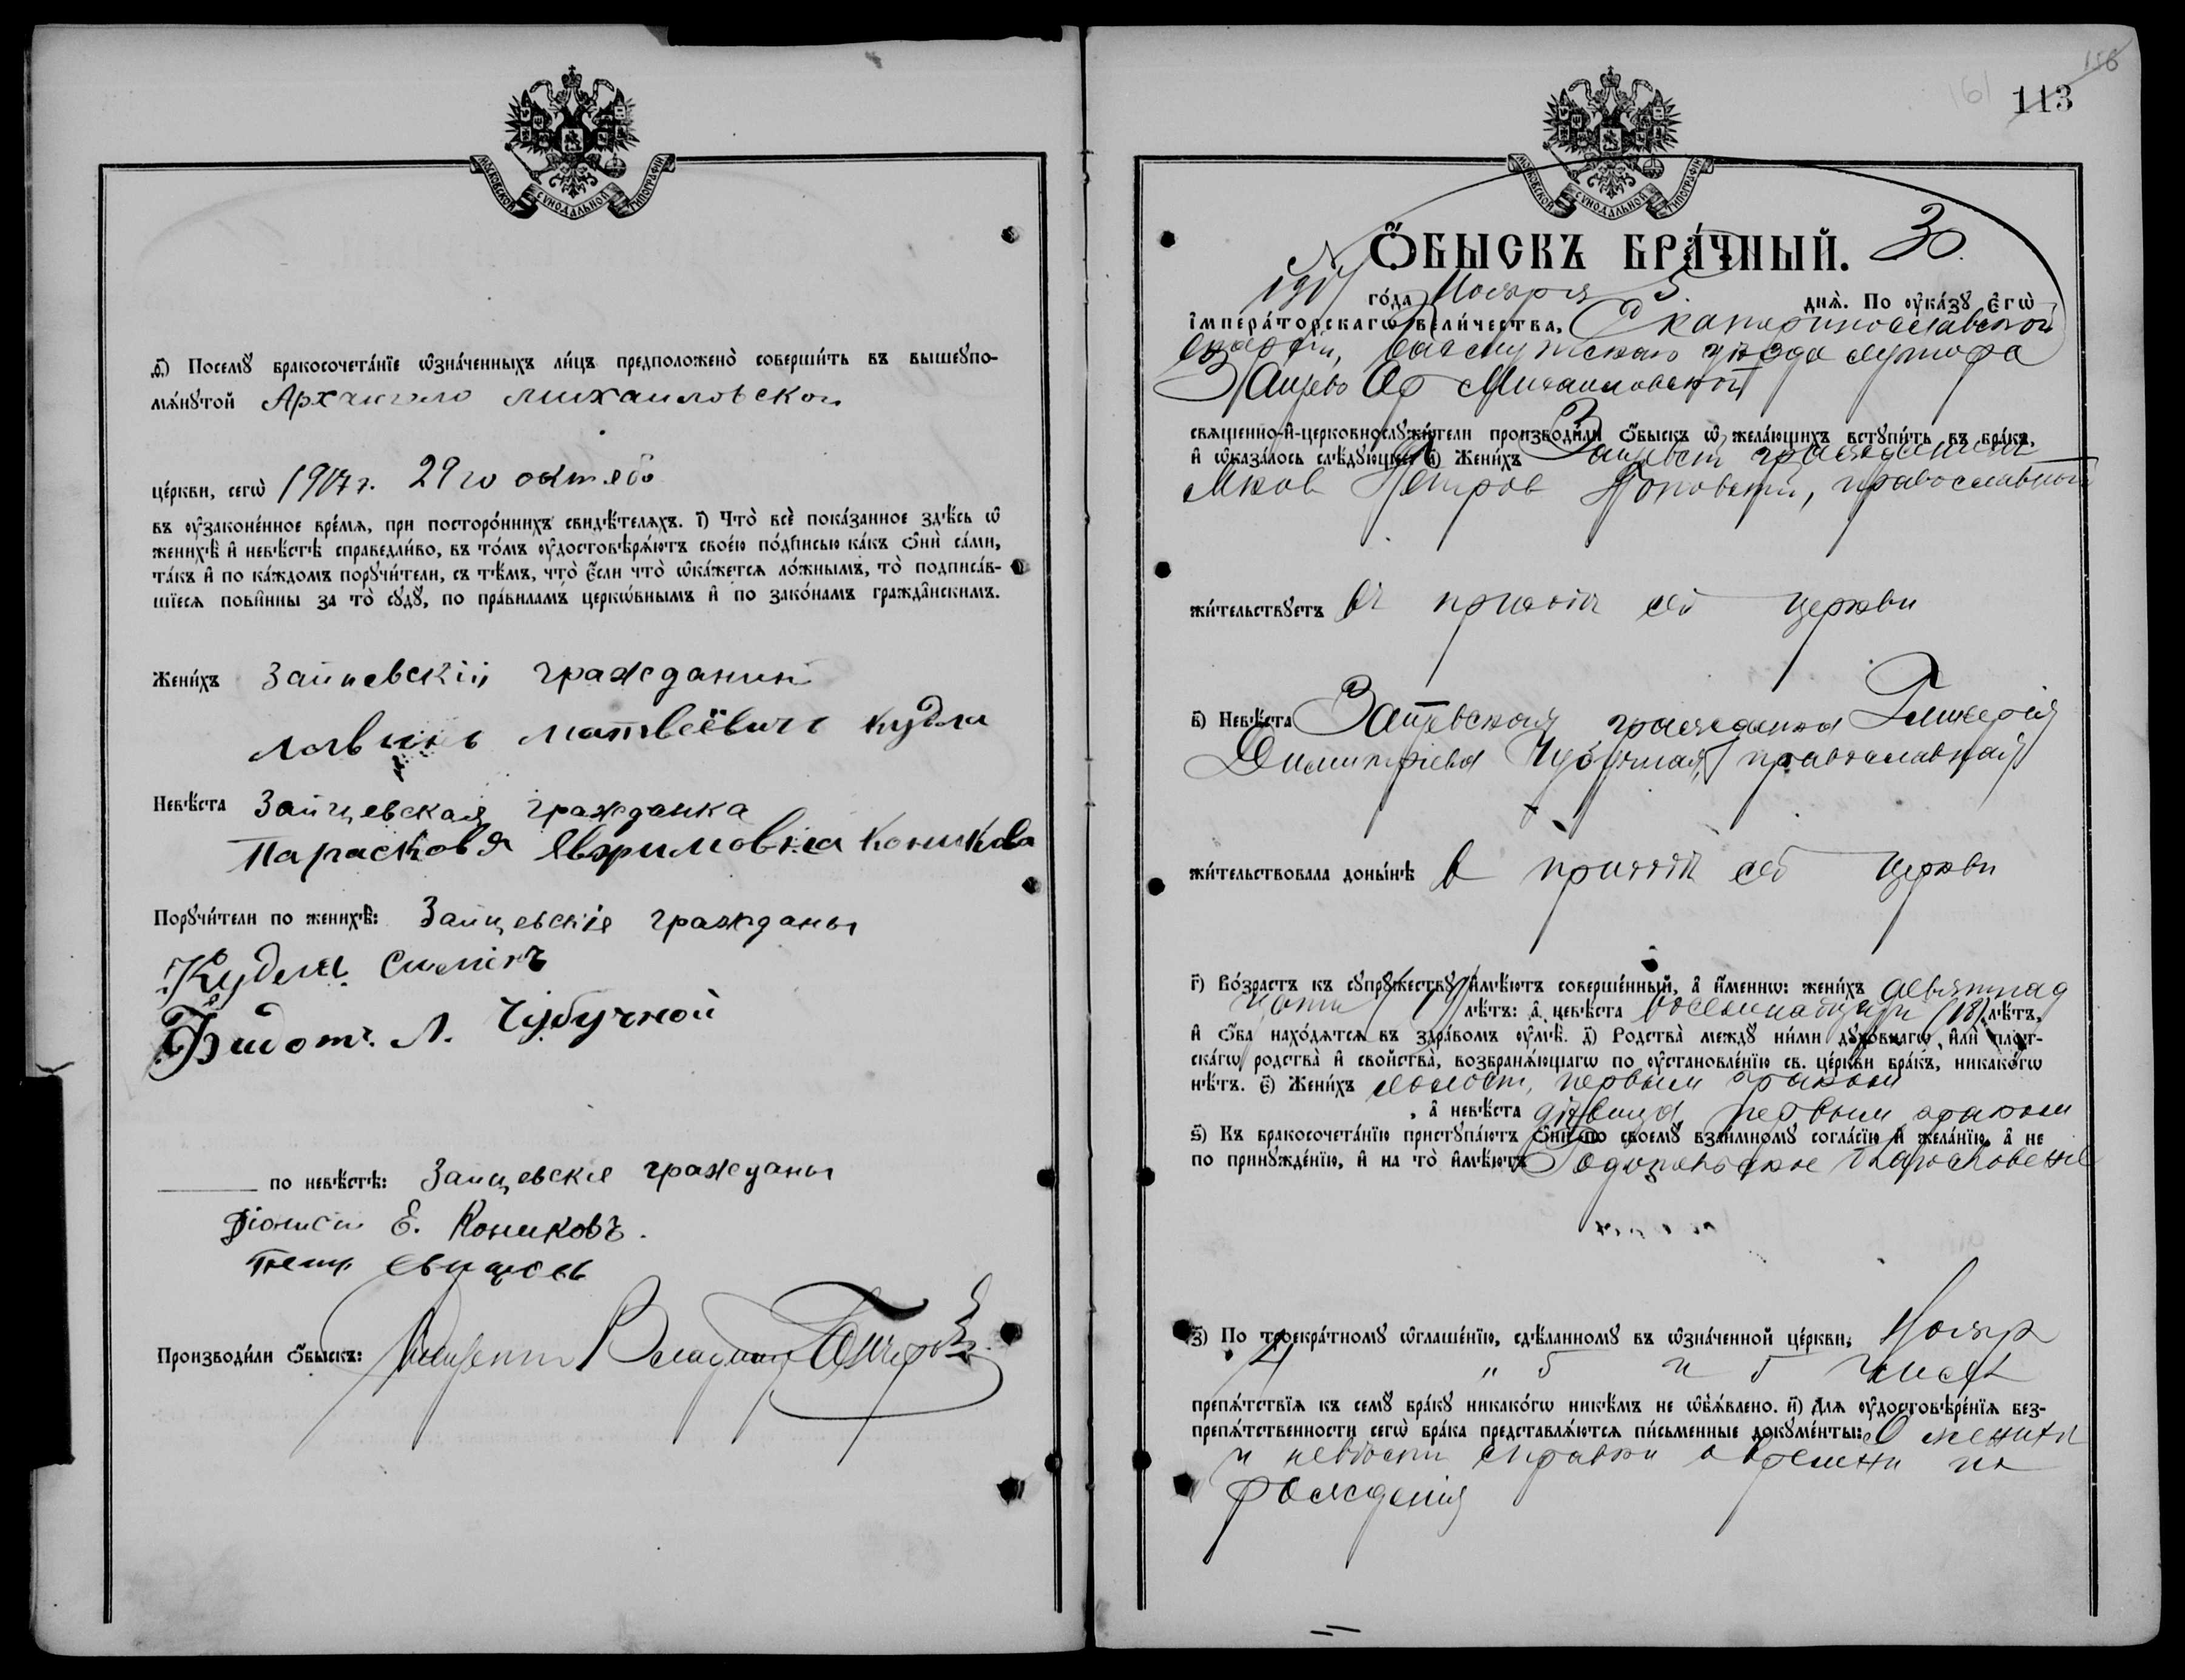 МОСКОВСКОЙ СѴНОДАЛЬНОЙ ТИПОГРАФІИ
ѳ҃) Посемꙋ̀ бракосочета́нїе ѡ҆зна́ченныхъ ли́цъ предположено̀ соверши́ть въ вышеꙋпо-
мѧ́нꙋтой Архангело Михаиловской
це́ркви, сегѡ̀ 1917 г. 29 го октяб
въ оу҆зако́ненное вре́мѧ, при посторо́ннихъ свидѣ́телѧхъ. і҃) Что̀ всѐ пока́занное здѣ́сь ѡ҆
женихѣ̀ и҆ невѣ́стѣ справедли́во, въ то́мъ оу҆достовѣрѧ́ютъ свое́ю по́дписью ка́къ ѻ҆нѝ са́ми,
та́къ и҆ по ка́ждомъ порꙋчи́тели, съ тѣ́мъ, что̀ є҆́сли что̀ ѡ҆ка́жетсѧ ло́жнымъ, то̀ подписа́в-
шїесѧ пови́нны за то̀ сꙋдꙋ̀, по пра́виламъ церкѡ́внымъ и҆ по зако́намъ гражда̂нскимъ.
Жени́хъ Зайцевскій гражданин
Матвеёвичь Кудля
Невѣ́ста Зайцевская гражданка
Парасковя Явхимовна Коникова
Порꙋчи́тели по женихѣ̀: Зайцевскія гражданы
Кудля Симінъ
Фидотъ. Л. Чубучной
по невѣ́стѣ: Зайцевскіе гражданы
Діонисій Е. Кониковъ.
Производи́ли ѻ҆́быскъ: Священникъ Владимир
156
161
113
МОСКОВСКОЙ СѴНОДАЛЬНОЙ ТИПОГРАФІИ
Ѻ҆́БЫСКЪ БРА́ЧНЫЙ. 30.
1917 го́да Ноября 5 днѧ̀. По оу҆ка́зꙋ Є҆гѡ̀
І҆мпера́торскагѡ Вели́чества, Екатеринославской
Епархіи, Бахмутскаго уѣзда хутора
Зайцево Ар Михаиловской
свѧще́нно-и҆-церковнослꙋжи́тели производи́ли ѻ҆́быскъ ѡ҆ жела́ющихъ встꙋпи́ть въ бра́къ,
и҆ ѡ҆каза́лось слѣ́дꙋющее: а҃) Жени́хъ Зайцевскій гражданинъ
Яков Петров православный
жи́тельствꙋетъ въ приходѣ сей церкви
в҃) Невѣ́ста Зайцевская гражданка Гликерія
Димитріева Чубучная, православная
жи́тельствовала доны́нѣ в приходѣ сей церкви
г҃) Во́зрастъ къ сꙋпрꙋ́жествꙋ и҆мѣ́ютъ соверше́нный, а҆ и҆́меннѡ: жени́хъ девятнад
цати (19) лѣ́тъ: а҆ невѣ́ста восемнадцати (18) лѣ́тъ,
и҆ ѻ҆́ба нахо́дѧтсѧ въ здра́вомъ оу҆мѣ̀. д҃) Родства̀ междꙋ̀ ни́ми дꙋхо́внагѡ, и҆лѝ плот-
ска́гѡ родства̀ и҆ свойства̀, возбранѧ́ющагѡ по оу҆становле́нїю св. це́ркви бра́къ, никако́гѡ
нѣ́тъ. є҃) Жени́хъ холост, первым браком
, а҆ невѣ́ста дѣвица, первым браком
ѕ҃) Къ бракосочета́нїю пристꙋпа́ютъ ѻ҆нѝ по своемꙋ̀ взаи́мномꙋ согла́сїю и҆ жела́нїю, а҆ не
по принꙋжде́нїю, и҆ на то̀ и҆мѣ́ютъ Родительское благословеніе
з҃) По троекра́тномꙋ ѡ҆глаше́нїю, сдѣ́ланномꙋ въ ѡ҆зна́ченной це́ркви, Ноябр
4, 5 и 5 числ
препѧ́тствїѧ къ семꙋ̀ бра́кꙋ никако́гѡ никѣ́мъ не ѡ҆б̾ѧ́влено. и҃) Длѧ̀ оу҆достовѣре́нїѧ без-
препѧ́тственности сегѡ̀ бра́ка представлѧ́ютсѧ пи́сьменные докꙋме́нты: О женихѣ
и невѣсти справки о времени их
рожденія